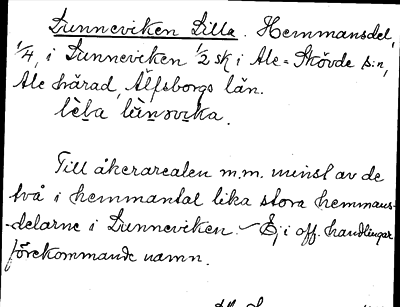 Lunneviken Lilla. Hemmansdel,
1/4, i Lunneviken 1/2 sk i Ale-Skövde s:n,
Ale härad, Älfsborgs län.
Till åkerarealen m.m. minst av de
två i hemmantal lika stora hemmans-
delarne i Lunneviken. - Ej i off. handlingar
förekommande namn.